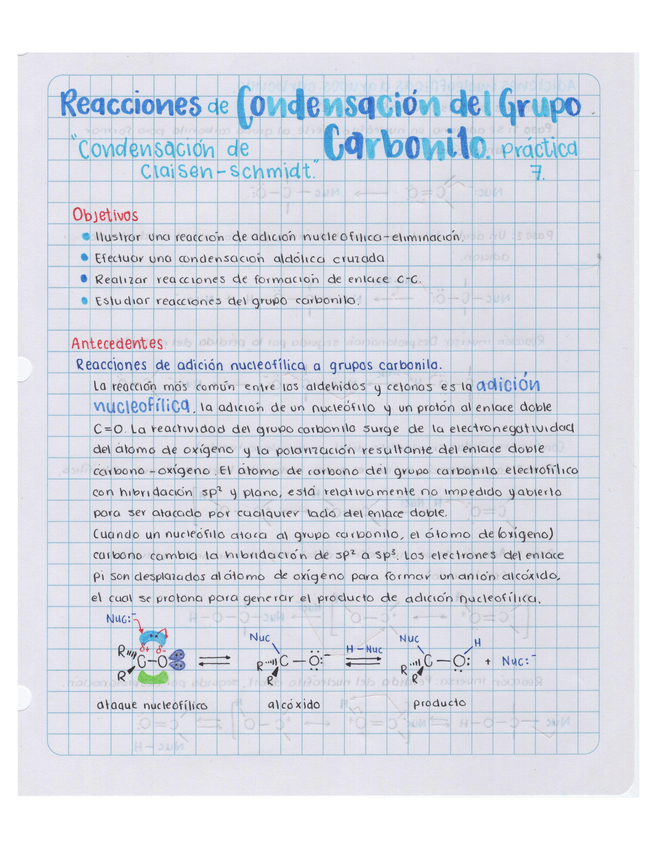 Reacciones de Condensación del Grupo
Carbonilo. Práctica 7.
"Condensación de
Claisen-Schmidt."
Objetivos
• Ilustrar una reacción de adición nucleofílica-eliminación.
• Efectuar una condensación aldólica cruzada.
• Realizar reacciones de formación de enlace C-C.
• Estudiar reacciones del grupo carbonilo.
Antecedentes
Reacciones de adición nucleofílica a grupos carbonilo.
La reacción más común entre los aldehídos y cetonas es la adición
nucleofílica, la adición de un nucleófilo y un protón al enlace doble
C=O. La reactividad del grupo carbonilo surge de la electronegatividad
del átomo de oxígeno y la polarización resultante del enlace doble
carbono-oxígeno. El átomo de carbono del grupo carbonilo electrofílico
con hibridación sp² y plano, está relativamente no impedido y abierto
para ser atacado por cualquier lado del enlace doble.
Cuando un nucleófilo ataca al grupo carbonilo, el átomo de (oxígeno)
carbono cambia la hibridación de sp² a sp³. Los electrones del enlace
pi son desplazados al átomo de oxígeno para formar un anión alcóxido,
el cual se protona para generar el producto de adición nucleofílica.
Nuc:⁻ Nuc Nuc H
δ+ δ- H-Nuc
R C-O R C-O:⁻ R C-O: + Nuc:⁻
R R R
ataque nucleofílico alcóxido producto